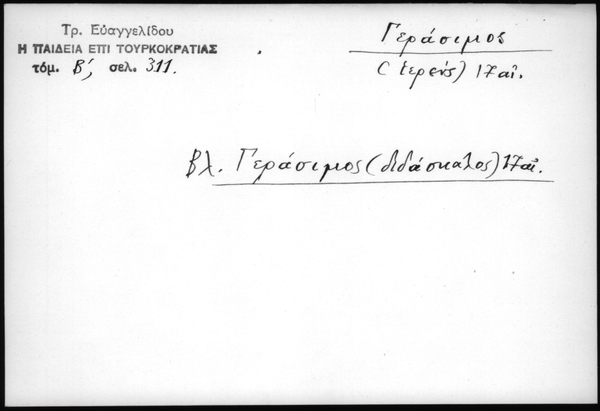 Τρ. Εὐαγγελίδου
Η ΠΑΙΔΕΙΑ ΕΠΙ ΤΟΥΡΚΟΚΡΑΤΙΑΣ
τόμ. Β΄, σελ. 311.
Γεράσιμος
(ἱερεύς) 17 αἰ.
βλ. Γεράσιμος (διδάσκαλος) 17 αἰ.